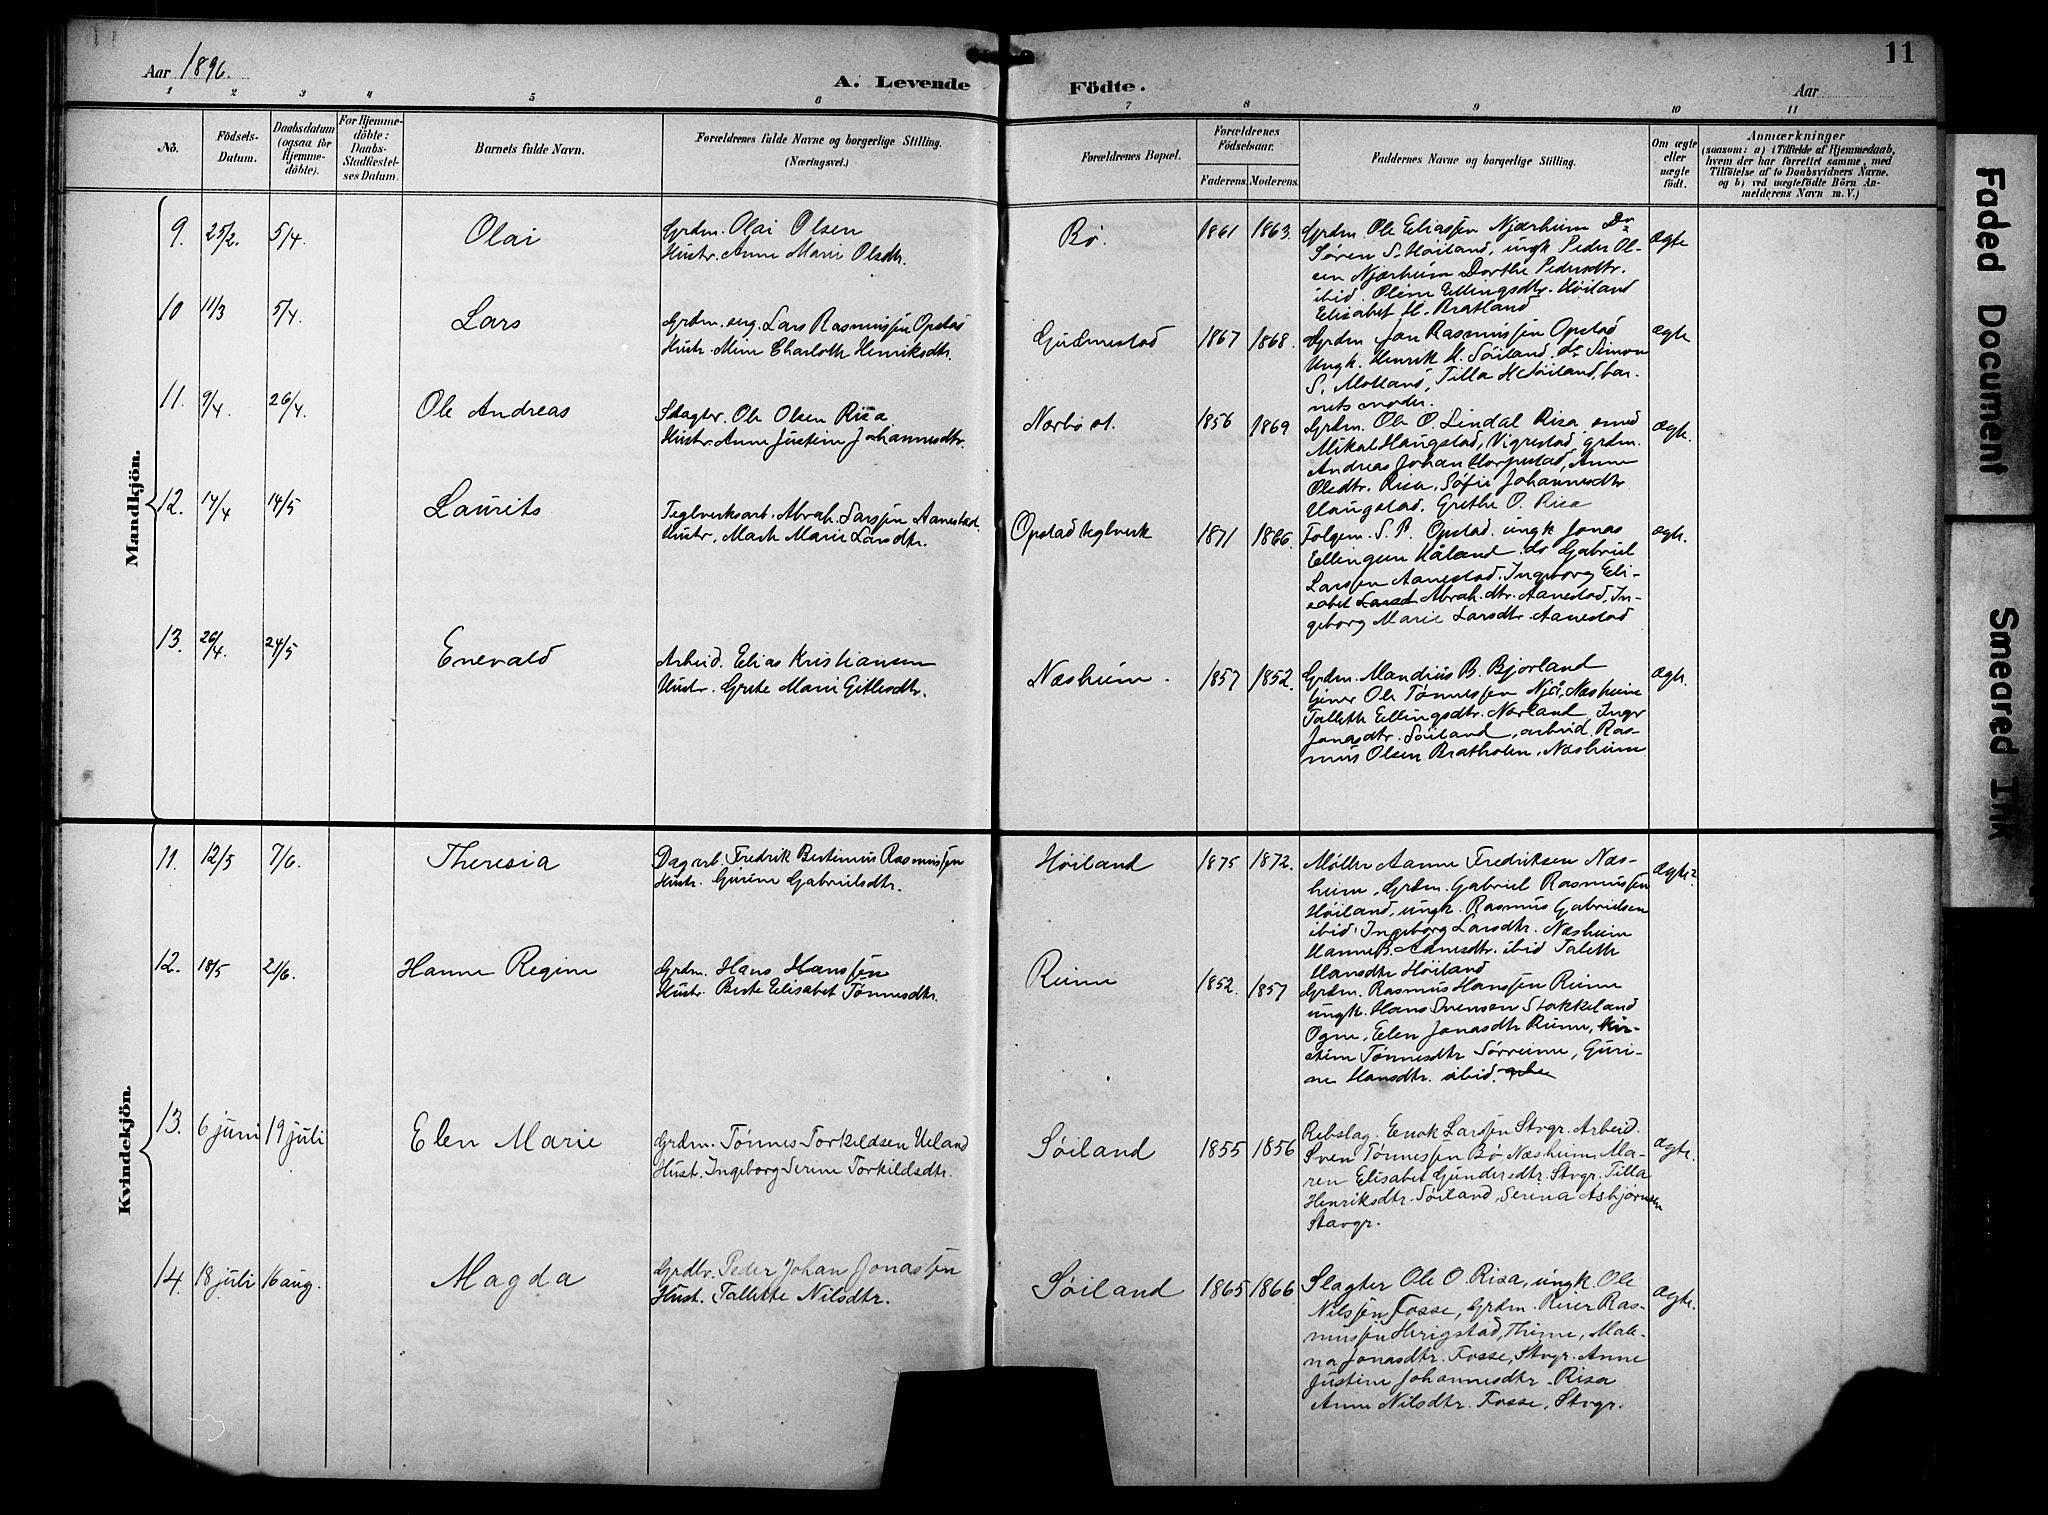 Aar 1896.
A. Levende
Födte.
Aar
11
1 2 3 4 5 6 7 8 9 10 11
No.
Födsels-
Datum.
Daabsdatum
(ogsaa for
Hjemme-
döbte).
For Hjemme-
döbte:
Daabs-
Stadfæstel-
ses Datum.
Barnets fulde Navn.
Forældrenes fulde Navne og borgerlige Stilling.
(Næringsvei.)
Forældrenes Bopæl.
Forældrenes
Födselsaar.
Faderens.
Moderens.
Faddernes Navne og borgerlige Stilling.
Om ægte
eller
uægte
födt.
Anmærkninger
(saasom: a) i Tilfælde af Hjemmedaab,
hvem der har forrettet samme, med
Tilföielse af to Daabsvidners Navne.
og b) ved uægtefödte Börn An-
melderens Navn m. V.)
Mandkjön.
9. 25/2. 5/4. Olai
Grdm. Olai Olsen
Hustr. Anne Marie Olsdtr.
Bø. 1861 1863.
Grdm Ole Eliassen Njærheim Do
Søren S. Høiland, ungk Peder Ol-
sen Njærheim Dorthe Pedersdtr.
ibid. Oline Ellingsdtr. Høiland
Elisabet H. Bratland
ægte
10 11/3 5/4. Lars
Grdm. sng. Lars Rasmussen Opstad
Hustr. Mine Charloth Henriksdtr.
Gudmestad 1867 1868.
Grdm Jon Rasmussen Opstad
Ungk. Henrik H. Søiland. do Simon
S. Motland, Tilla H Søiland, bar-
nets moder.
ægte
11. 9/4. 26/4. Ole Andreas
Slagter. Ole Olsen Risa
Hustr. Anne Justine Johannesdtr.
Nærbø st. 1856 1869
Grdm. Ole O. Lindal Risa, smed
Mikal Haugstad, Vigrestad, grdm.
Andreas Johan Horpestad, Anne
Olesdtr. Risa, Sofie Johannesdtr
Haugstad, Grethe O. Risa
ægte.
12. 17/4 14/5 Laurits
Teglverksarb. Abrah. Larssen Aanestad.
Hustr. Marth Marie Larsdtr.
Opstad teglverk 1871 1866.
Folgem. S. P. Opstad. ungk Jonas
Ellingsen Håland do Gabriel
Larssen Aanestad. Ingeborg Eli-
sabet Larsd Abrah.dtr. Aanestad, In-
geborg Marie Larsdtr. Aanestad
ægte.
13. 26/4. 24/5 Enevald
Arbeid. Elias Kristiansen
Hustr. Grete Marie Gitlesdtr.
Næsheim. 1857 1852.
Grdm. Mandius B. Bjorland
Tjener Ole Tønnessen Njå, Næsheim
Talleth Ellingsdtr. Norland, Inger
Jonasdtr. Søiland, arbeid. Ras-
mus Olsen Bratholen, Næsheim
ægte.
Kvindekjön.
11. 12/5 7/6. Theresia
Dagarb. Fredrik Bertinius Rasmussen
Hustr. Gurine Gabrielsdtr.
Høiland 1875 1872.
Møller Aanne Fredriksen Næs-
heim, Grdm. Gabriel Rasmussen
Høiland, ungk. Rasmus Gabrielsen
ibid, Ingeborg Larsdtr. Næsheim
Hanne B. Aanesdtr. ibid Taleth
Hansdtr Høiland
ægte.
12. 18/5 21/6. Hanne Regine
Grdm. Hans Hanssen
Hustr. Berte Elisabet Tønnesdtr.
Reime 1852. 1857
Grdm. Rasmus Hanssen Reime
ungk. Hans Svensen Stokkeland
Ogne, Elen Jonasdtr Reime, Kir-
stine Tønnesdtr Sørreime, Guri-
ne Hansdtr. ibid.
13. 6 juni 19 juli Elen Marie
Grdm. Tønnes Torkildsen Ueland
Hust. Ingeborg Serine Torkildsdtr.
Søiland 1855 1856
Rebslag. Enok Larssen Stvgr. Arbeid.
Sven Tønnessen Bø Næsheim, Ma-
ren Elisabet Gundersdtr. Stvgr. Tilla
Henriksdtr. Søiland, Serina Asbjørnsen
Stavgr.
ægte.
14. 18 juli 16 aug. Magda
Grdbr. Peder Johan Jonassen
Hust. Tallette Nilsdtr.
Søiland 1865 1866
Slagter Ole O. Risa, ungk. Ole
Nilssen Fosse, Grdm. Reier Ras-
mussen Herigstad, Thime, Male-
na Jonasdtr. Fosse, Stvgr. Anne
Justine Johannesdtr. Risa
Anne Nilsdtr. Fosse, Stvgr.
ægte.
Faded Document
Smeared Ink